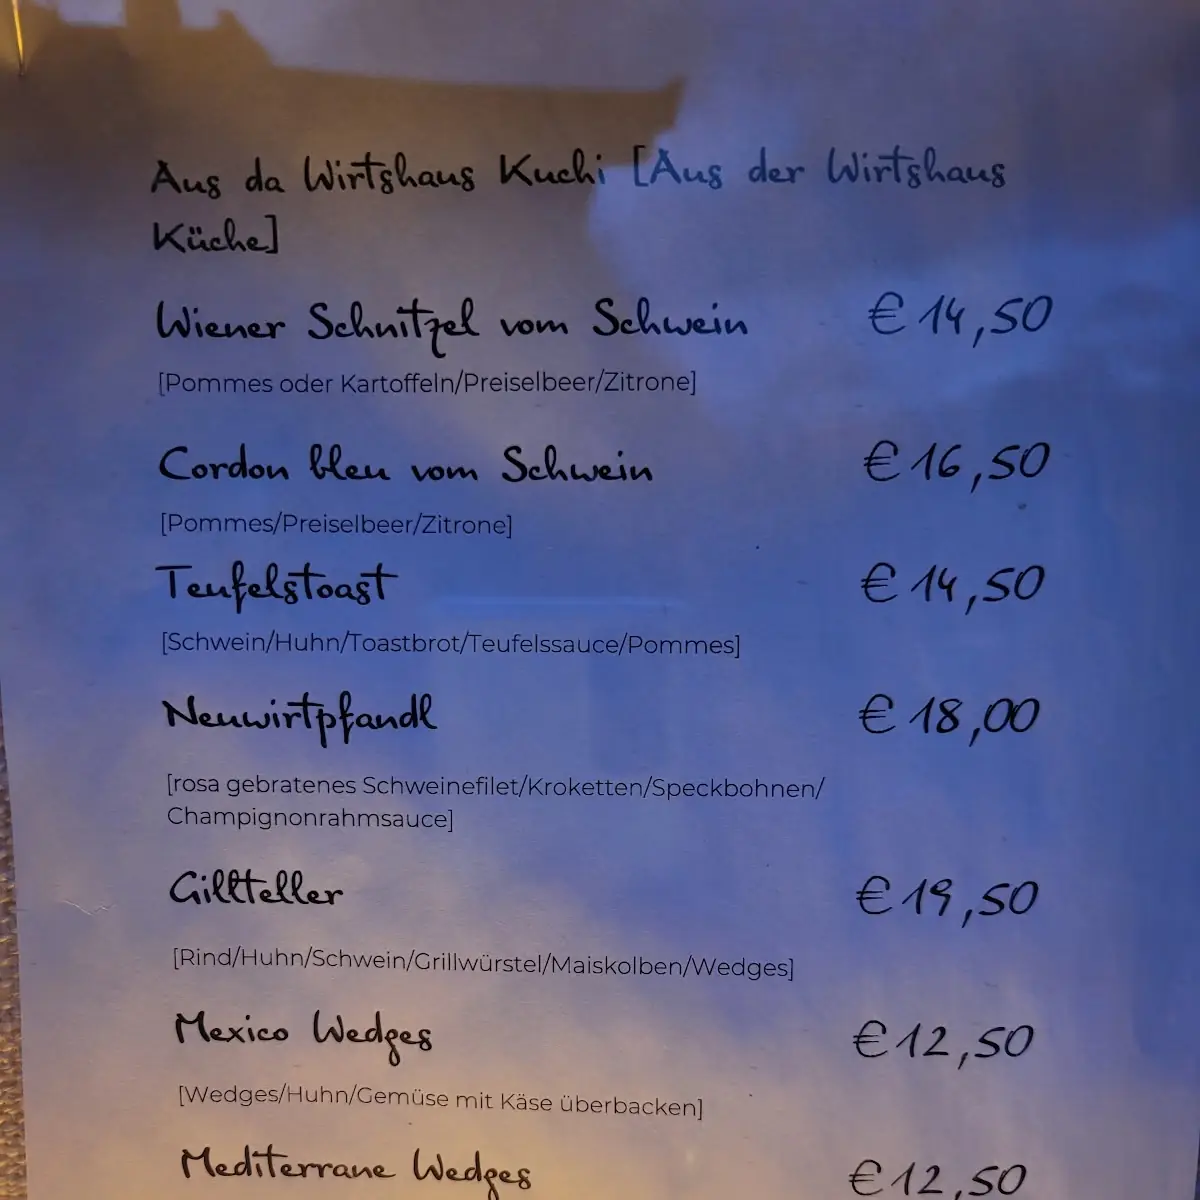 Aus da Wirtshaus Kuchi [Aus der Wirtshaus
Küche]
Wiener Schnitzel vom Schwein € 14,50
[Pommes oder Kartoffeln/Preiselbeer/Zitrone]
Cordon bleu vom Schwein € 16,50
[Pommes/Preiselbeer/Zitrone]
Teufelstoast € 14,50
[Schwein/Huhn/Toastbrot/Teufelssauce/Pommes]
Neuwirtpfandl € 18,00
[rosa gebratenes Schweinefilet/Kroketten/Speckbohnen/
Champignonrahmsauce]
Gillteller € 19,50
[Rind/Huhn/Schwein/Grillwürstel/Maiskolben/Wedges]
Mexico Wedges € 12,50
[Wedges/Huhn/Gemüse mit Käse überbacken]
Mediterrane Wedges € 12,50